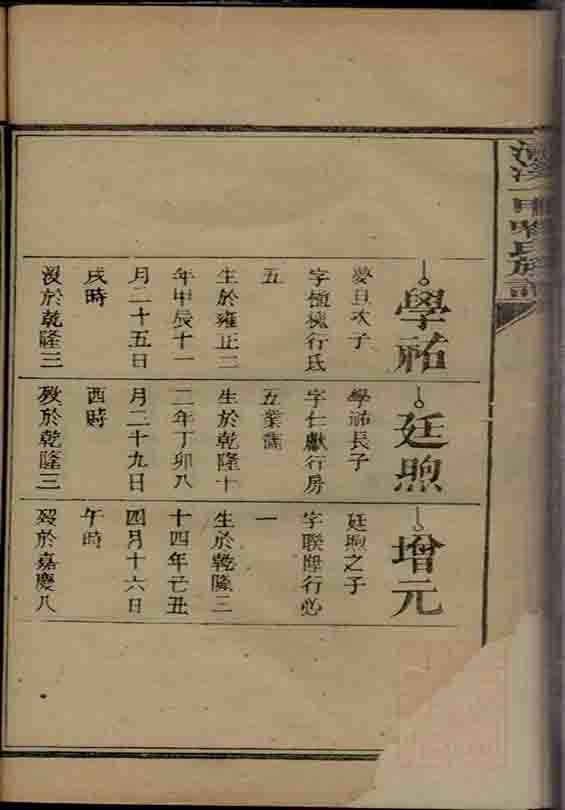 氏族譜
學祐
夢旦次子
字 槐行氏
五
生於雍正二
年甲辰十一
月二十五日
戌時
歿於乾隆三
廷煦
學祐長子
字仁獻行房
五業儒
生於乾隆十
二年丁卯八
月二十九日
酉時
歿於乾隆三
增元
廷煦之子
字聯 行必
一
生於乾隆三
十四年己丑
四月十六日
午時
歿於嘉慶八